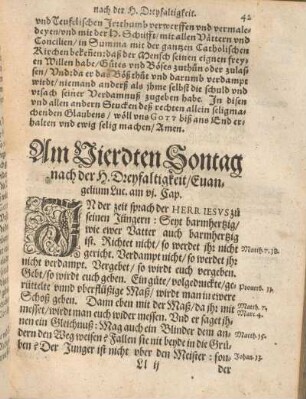 nach der H. Dreyfaltigkeit. 42
vnd Teufelischen Jrrthumb verwerffen vnd vermale-
deyen/vnd mit der H. Schrifft/mit allen Vättern vnd
Concilien/in Summa mit der gantzen Catholischen
Kirchen bekeñen: daß der Mensch seinen eignen frey-
en Willen habe/Guts vnd Böses zuthůn oder zulas-
sen/Vnd: da er das Böß thůt vnd darumb verdampt
wirdt/niemand anderß als jhme selbst die schuld vnd
vrsach seiner Verdamnuß zugeben habe. In disen
vnd allen andern Stucken deß rechten allein seligma-
chenden Glaubens/wöll vns GOTT biß ans End er-
halten vnd ewig selig machen/Amen.
Am Vierdten Sontag
nach der H. Dreyfaltigkeit/Euan-
gelium Luc. am vj. Cap.
JN der zeit sprach der HERR IESVS zů
seinen Jüngern: Seyt barmhertzig/
wie ewer Vatter auch barmhertzig
ist. Richtet nicht/so werdet jhr nicht Matth. 7.
gericht. Verdampt nicht/so werdet jhr
nicht verdampt. Vergebet/so wirdt euch vergeben.
Gebt/so wirdt euch geben. Ein gůte/volgedruckte/ge-
rüttelte vnnd vberflüssige Maß/wirdt man in ewere
Schoß geben. Dann eben mit der Maß/da jhr mit Matth. 7.
messet/wirdt man euch wider messen. Vnd er saget jh- Marc. 4.
nen ein Gleichnuß: Mag auch ein Blinder dem an-
dern den Weg weisen? Fallen sie nit beyde in die Grů- Matth. 15.
ben? Der Jünger ist nicht vber den Meister: son- Johan. 13.
Ll ij der